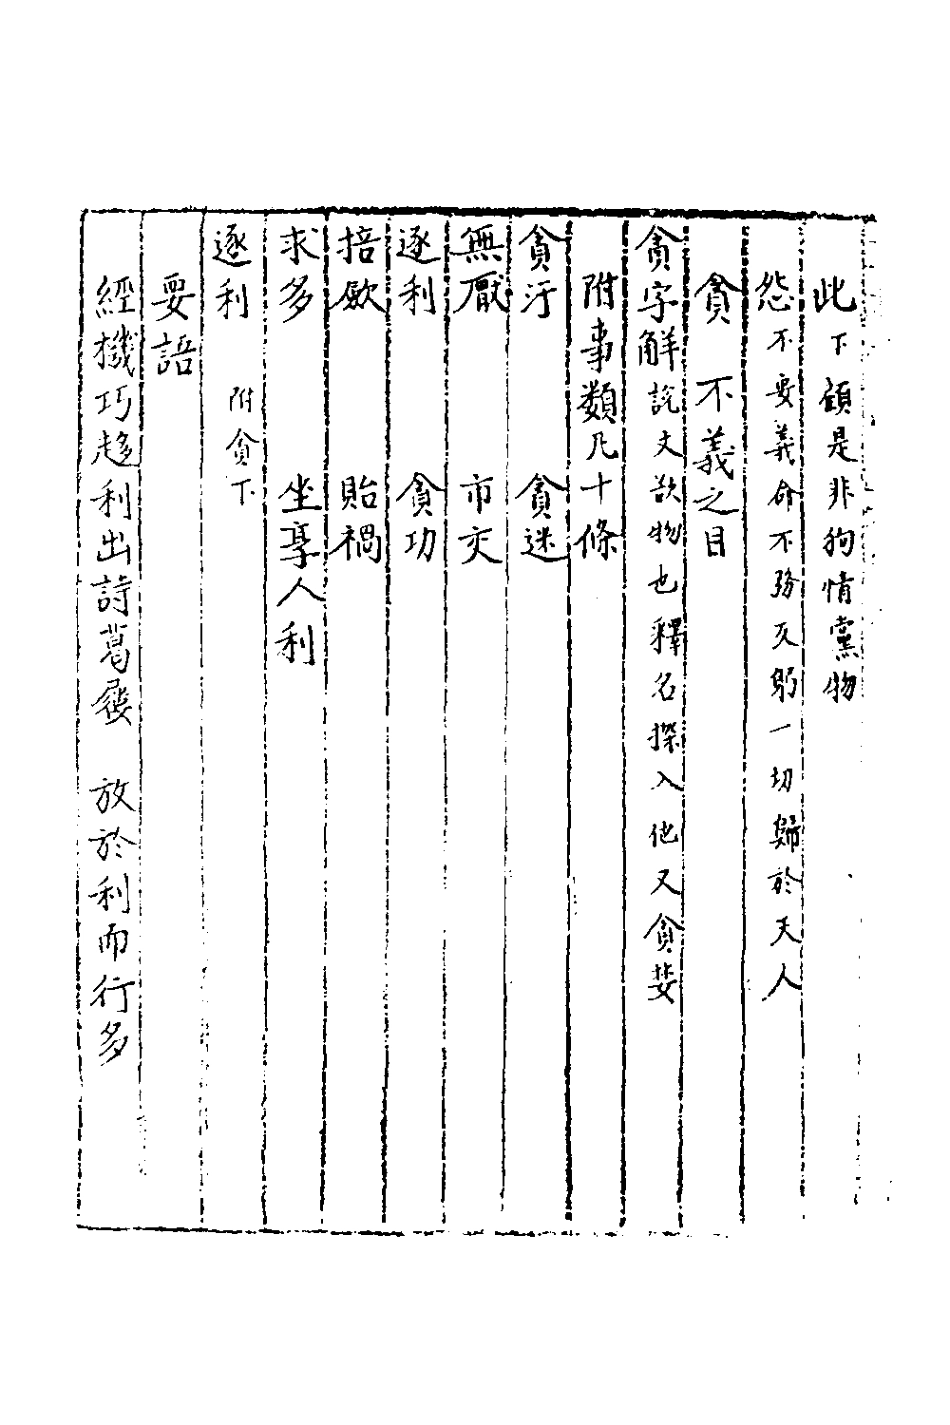 此不顧是非狥情黨物
怨不安義命不務反躬一切歸於天人
貪　不義之目
貪字解說文欲物也釋名探入他又貪婪
附事類凡十條
貪汙　貪迷
無厭　市交
逐利　貪功
掊歛　貽禍
求多　坐享人利
逐利　附貪下
要語
經機巧趍利出詩葛屨　放於利而行多